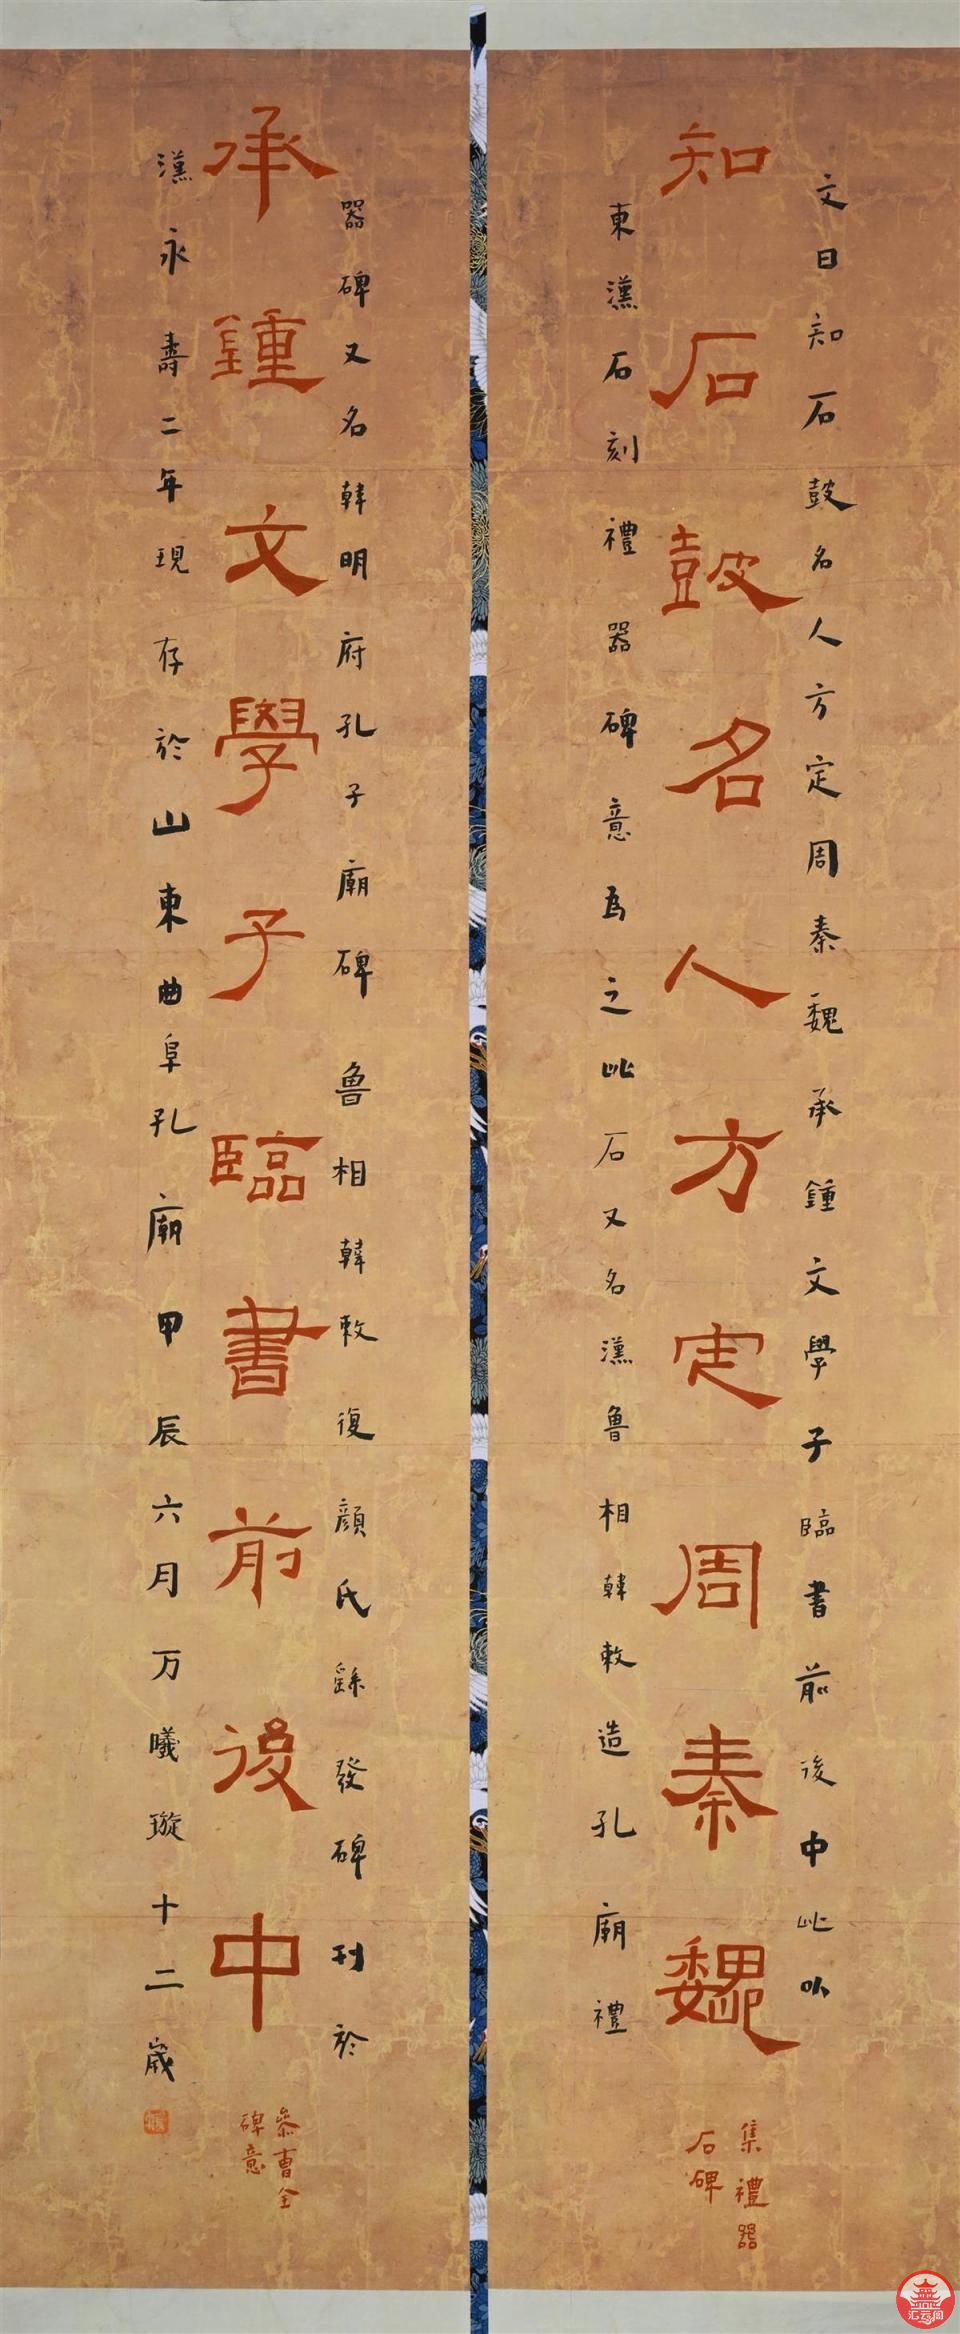 文曰知石鼓名人方定周秦魏承鍾文學子臨書前後中此以
知石鼓名人方定周秦魏
集禮器
石碑
東漢石刻禮器碑意為之此石又名漢魯相韓敕造孔廟禮
器碑又名韓明府孔子廟碑魯相韓敕復顏氏繇發碑刊於
承鍾文學子臨書前後中
參曹全
碑意
漢永壽二年現存於山東曲阜孔廟甲辰六月万曦璇十二歲
汇云阁